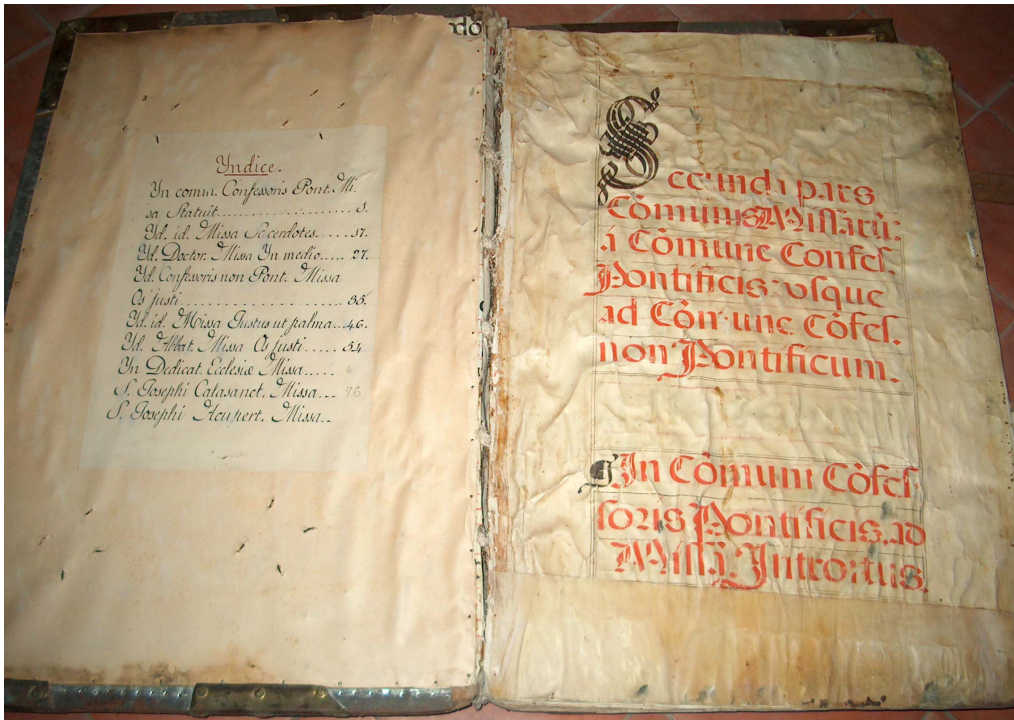 do
Yndice.
Yn comm. Confessoris Pont. Mi.
sa Statuit.....................1.
Yd. id. Missa Sacerdotes.....17.
Yd. Doctor. Missa Yn medio.... 27.
Yd. Confessoris non Pont. Missa
Os justi...................... 35.
Yd. id. Missa Justus ut palma...46.
Yd. Abbat. Missa Os justi..... 54
Yn Dedicat. Ecclesiæ Missa.....
S. Josephi Calasanct. Missa... 76
S. Josephi Acupert. Missa..
Secunda pars
Cōmunis Missarū:
à Cōmune Confes.
Pontificis vsque
ad Cōmune Cōfes.
non Pontificum.
In Cōmuni Cōfes
soris Pontificis, ad
Missā. Introitus.